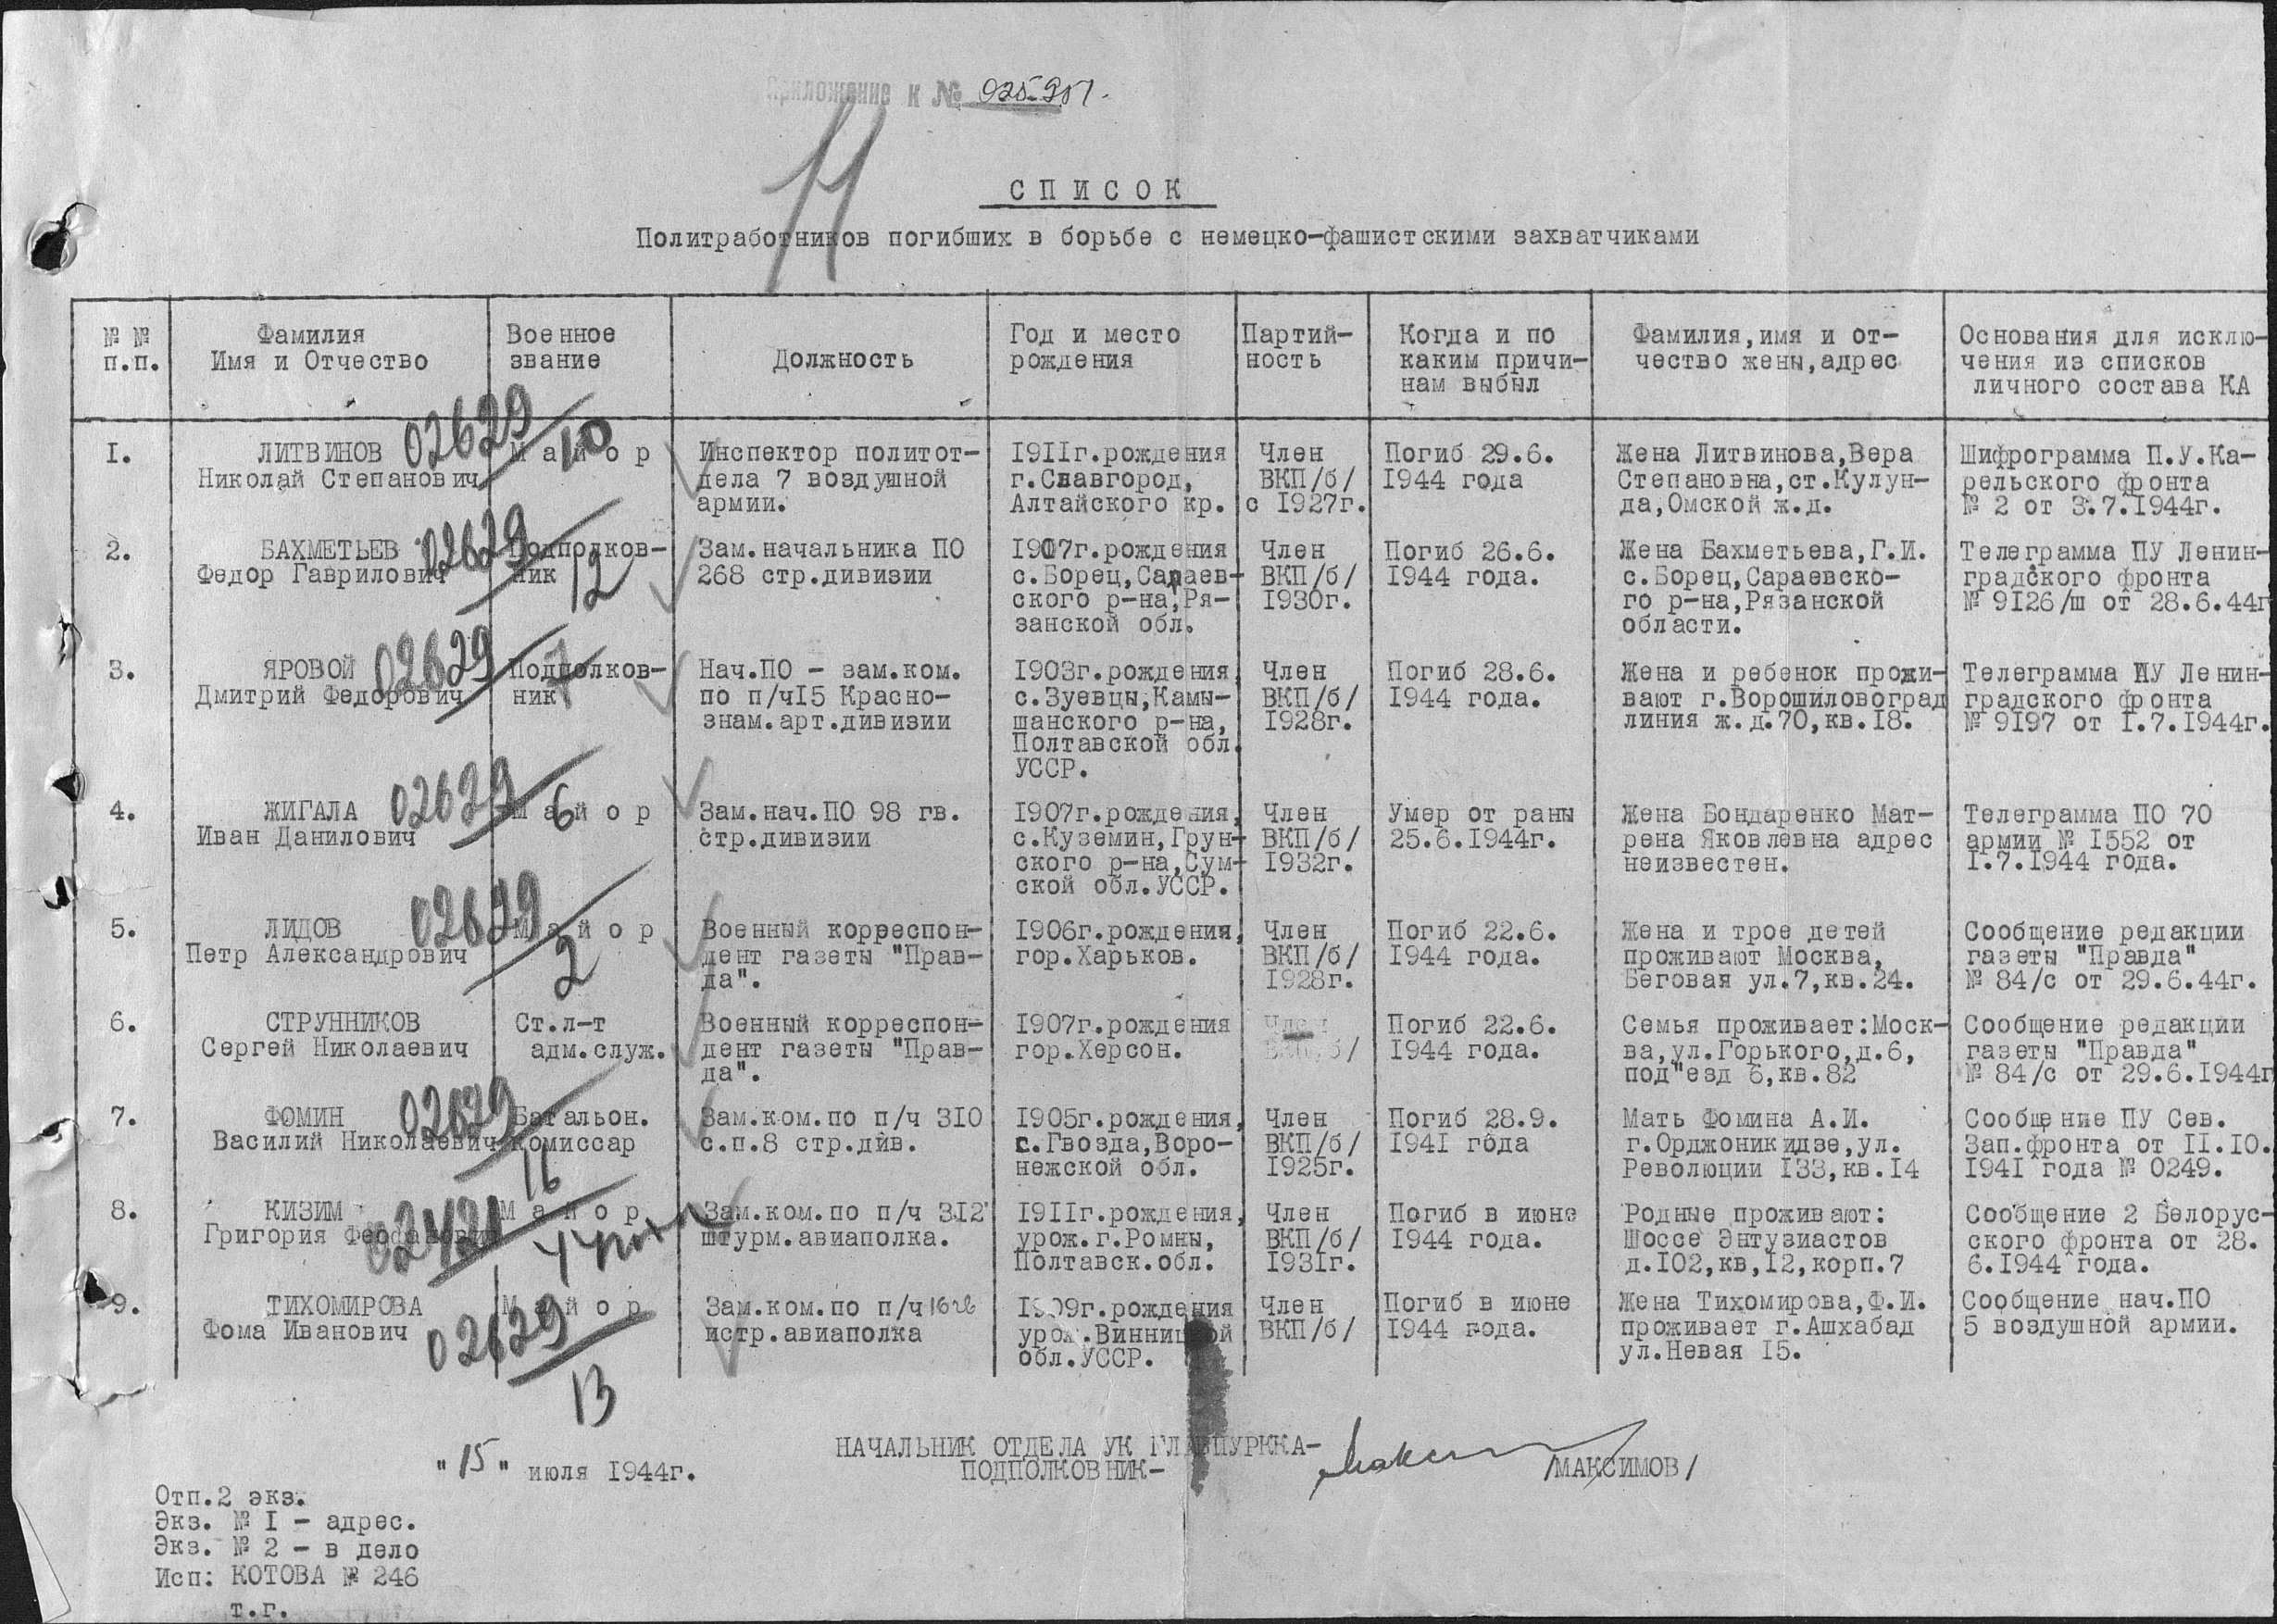 Приложение к № 025951.
11
СПИСОК
Политработников погибших в борьбе с немецко-фашистскими захватчиками
№ № п.п.
Фамилия Имя и Отчество
Военное звание
Должность
Год и место рождения
Партий-
ность
Когда и по
каким причи-
нам выбыл
Фамилия,имя и от-
чество жены,адрес
Основания для исклю-
чения из списков
личного состава КА
1.
ЛИТВИНОВ
Николай Степанович
02629
10
Майор
Инспектор политот-
дела 7 воздушной
армии.
1911г.рождения
г.Славгород,
Алтайского кр.
Член
ВКП/б/
с 1927г.
Погиб 29.6.
1944 года
Жена Литвинова,Вера
Степановна,ст.Кулун-
да,Омской ж.д.
Шифрограмма П.У.Ка-
рельского фронта
№ 2 от 3.7.1944г.
2.
БАХМЕТЬЕВ
Федор Гаврилович
02629
12
Подполков-
ник
Зам.начальника ПО
268 стр.дивизии
1907г.рождения
с.Борец,Сараев-
ского р-на,Ря-
занской обл.
Член
ВКП/б/
1930г.
Погиб 26.6.
1944 года.
Жена Бахметьева,Г.И.
с.Борец,Сараевско-
го р-на,Рязанской
области.
Телеграмма ПУ Ленин-
градского фронта
№ 9126/ш от 28.6.44г
3.
ЯРОВОЙ
Дмитрий Федорович
02629
7
Подполков-
ник
Нач.ПО - зам.ком.
по п/ч15 Красно-
знам.арт.дивизии
1903г.рождения,
с.Зуевцы,Камы-
шанского р-на,
Полтавской обл.
УССР.
Член
ВКП/б/
1928г.
Погиб 28.6.
1944 года.
Жена и ребенок прожи-
вают г.Ворошиловоград
линия ж.д.70,кв.18.
Телеграмма ПУ Ленин-
градского фронта
№ 9197 от 1.7.1944г.
4.
ЖИГАЛА
Иван Данилович
02629
6
Майор
Зам.нач.ПО 98 гв.
стр.дивизии
1907г.рождения,
с.Куземин,Грун-
ского р-на,Сум-
ской обл.УССР.
Член
ВКП/б/
1932г.
Умер от раны
25.6.1944г.
Жена Бондаренко Мат-
рена Яковлевна адрес
неизвестен.
Телеграмма ПО 70
армии № 1552 от
1.7.1944 года.
5.
ЛИДОВ
Петр Александрович
02629
2
Майор
Военный корреспон-
дент газеты "Прав-
да".
1906г.рождения,
гор.Харьков.
Член
ВКП/б/
1928г.
Погиб 22.6.
1944 года.
Жена и трое детей
проживают Москва,
Беговая ул.7,кв.24.
Сообщение редакции
газеты "Правда"
№ 84/с от 29.6.44г.
6.
СТРУННИКОВ
Сергей Николаевич
Ст.л-т
адм.служ.
Военный корреспон-
дент газеты "Прав-
да".
1907г.рождения
гор.Херсон.
Член
ВКП/б/
Погиб 22.6.
1944 года.
Семья проживает:Моск-
ва,ул.Горького,д.6,
под"езд 6,кв.82
Сообщение редакции
газеты "Правда"
№ 84/с от 29.6.1944г
7.
ФОМИН
Василий Николаевич
02629
16
Батальон.
комиссар
Зам.ком.по п/ч 310
с.п.8 стр.див.
1905г.рождения,
с.Гвозда,Воро-
нежской обл.
Член
ВКП/б/
1925г.
Погиб 28.9.
1941 года
Мать Фомина А.И.
г.Орджоникидзе,ул.
Революции 133,кв.14
Сообщение ПУ Сев.
Зап.фронта от 11.10.
1941 года № 0249.
8.
КИЗИМ
Григория
Майор
Зам.ком.по п/ч 312
штурм.авиаполка.
1911г.рождения,
урож.г.Ромны,
Полтавск.обл.
Член
ВКП/б/
1931г.
Погиб в июне
1944 года.
Родные проживают:
Шоссе Энтузиастов
д.102,кв,12,корп.7
Сообщение 2 Белорус-
ского фронта от 28.
6.1944 года.
9.
ТИХОМИРОВА
Фома Иванович
02629
13
Майор
Зам.ком.по п/ч
истр.авиаполка
1909г.рождения
урож.Винницкой
обл.УССР.
Член
ВКП/б/
Погиб в июне
1944 года.
Жена Тихомирова,Ф.И.
проживает г.Ашхабад
ул.Невая 15.
Сообщение нач.ПО
5 воздушной армии.
"15" июля 1944г.
НАЧАЛЬНИК ОТДЕЛА УК ГЛАВПУРККА-
ПОДПОЛКОВНИК-
/МАКСИМОВ/
Отп.2 экз.
Экз. № 1 - адрес.
Экз. № 2 - в дело
Исп: КОТОВА № 246
т.г.